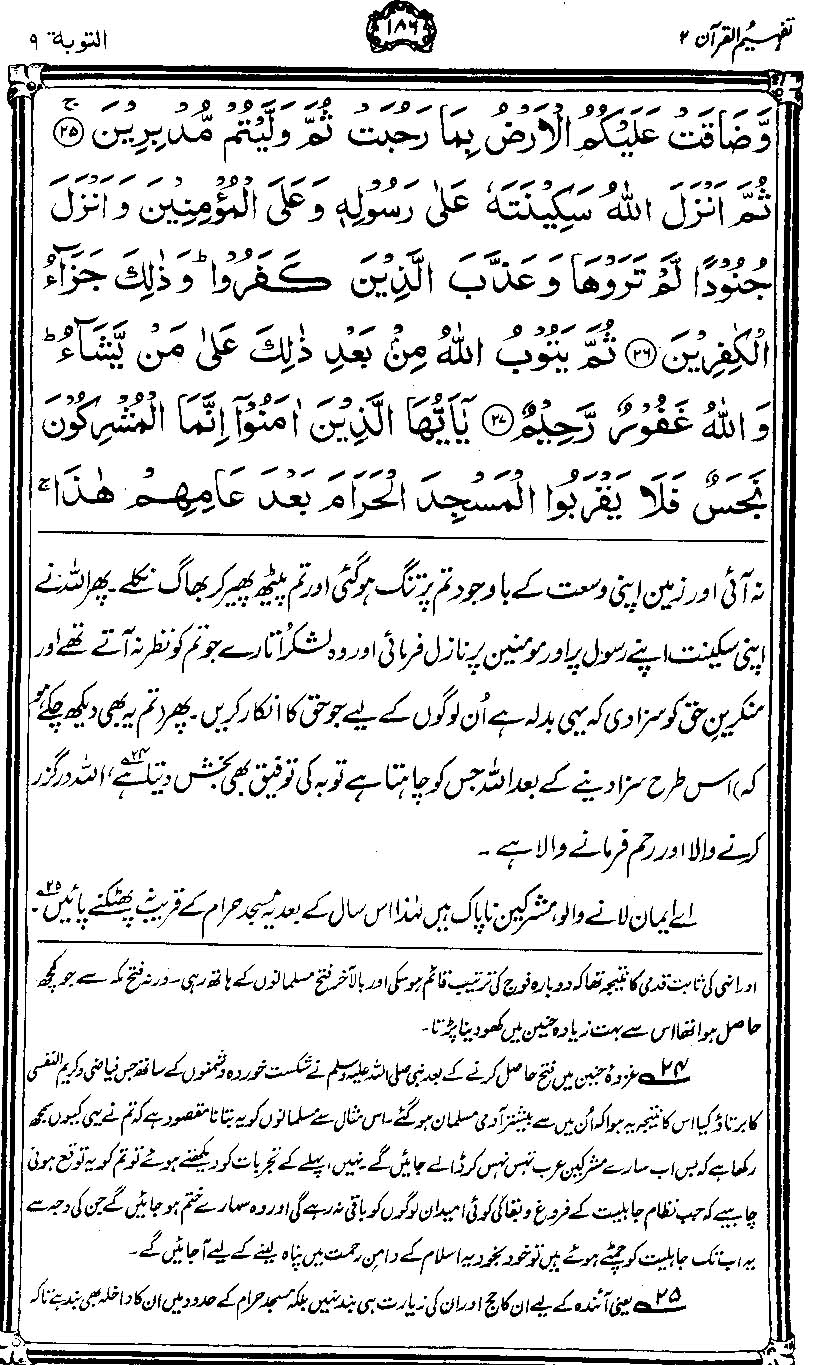 تفہیم القرآن ۲
۱۸۶
التوبة ۹
وَّضَاقَتْ عَلَيْكُمُ الْاَرْضُ بِمَا رَحُبَتْ ثُمَّ وَلَّيْتُمْ مُّدْبِرِيْنَ ﴿۲۵﴾ ۚ
ثُمَّ اَنْزَلَ اللّٰهُ سَكِيْنَتَهٗ عَلٰى رَسُوْلِهٖ وَعَلَى الْمُؤْمِنِيْنَ وَاَنْزَلَ
جُنُوْدًا لَّمْ تَرَوْهَا وَعَذَّبَ الَّذِيْنَ كَفَرُوْا ؕ وَذٰلِكَ جَزَآءُ
الْكٰفِرِيْنَ ﴿۲۶﴾ ثُمَّ يَتُوْبُ اللّٰهُ مِنْۢ بَعْدِ ذٰلِكَ عَلٰى مَنْ يَّشَآءُ ؕ
وَاللّٰهُ غَفُوْرٌ رَّحِيْمٌ ﴿۲۷﴾ يٰۤاَيُّهَا الَّذِيْنَ اٰمَنُوْۤا اِنَّمَا الْمُشْرِكُوْنَ
نَجَسٌ فَلَا يَقْرَبُوا الْمَسْجِدَ الْحَرَامَ بَعْدَ عَامِهِمْ هٰذَا ۚ
نہ آئی اور زمین اپنی وسعت کے باوجود تم پر تنگ ہوگئی اور تم پیٹھ پھیر کر بھاگ نکلے۔ پھر اللہ نے
اپنی سکینت اپنے رسول پر اور مومنین پر نازل فرمائی اور وہ لشکر اُتارے جو تم کو نظر نہ آتے تھے اور
منکرینِ حق کو سزا دی کہ یہی بدلہ ہے اُن لوگوں کے لیے جو حق کا انکار کریں۔ پھر (تم یہ بھی دیکھ چکے ہو
کہ) اس طرح سزا دینے کے بعد اللہ جس کو چاہتا ہے توبہ کی توفیق بھی بخش دیتا ہے،۲۴ اللہ درگزر
کرنے والا اور رحم فرمانے والا ہے۔
اے ایمان لانے والو، مشرکین ناپاک ہیں لہٰذا اس سال کے بعد یہ مسجدِ حرام کے قریب نہ پھٹکنے پائیں۲۵۔
اور انہی کی ثابت قدمی کا نتیجہ تھا کہ دوبارہ فوج کی ترتیب قائم ہوسکی اور بالآخر فتح مسلمانوں کے ہاتھ رہی۔ ورنہ فتحِ مکہ سے جو کچھ
حاصل ہوا تھا اس سے بہت زیادہ حنین میں کھو دینا پڑتا۔
۲۴ غزوۂ حنین میں فتح حاصل کرنے کے بعد نبی صلی اللہ علیہ وسلم نے شکست خوردہ دشمنوں کے ساتھ جس فیاضی و کریم النفسی
کا برتاؤ کیا اس کا نتیجہ یہ ہوا کہ اُن میں سے بیشتر آدمی مسلمان ہوگئے۔ اس مثال سے مسلمانوں کو یہ بتانا مقصود ہے کہ تم نے یہی کیوں سمجھ
رکھا ہے کہ بس اب سارے مشرکینِ عرب تہس نہس کر ڈالے جائیں گے۔ نہیں، پہلے کے تجربات کو دیکھتے ہوئے تو تم کو یہ توقع ہونی
چاہیے کہ جب نظامِ جاہلیت کے فروغ و بقا کی کوئی امید ان لوگوں کو باقی نہ رہے گی اور وہ سہارے ختم ہو جائیں گے جن کی وجہ سے
یہ اب تک جاہلیت کو چمٹے ہوئے ہیں تو خود بخود یہ اسلام کے دامنِ رحمت میں پناہ لینے کے لیے آجائیں گے۔
۲۵ یعنی آئندہ کے لیے ان کا حج اور ان کی زیارت ہی بند نہیں بلکہ مسجدِ حرام کے حدود میں ان کا داخلہ بھی بند ہے تاکہ